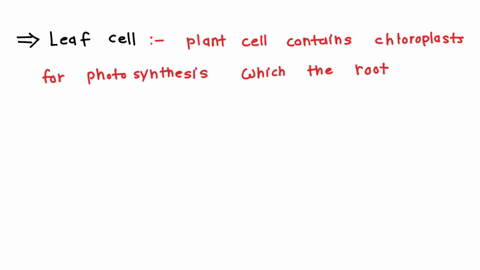 ⇒ Leaf cell :- plant cell contains chloroplasts
for photosynthesis which the root